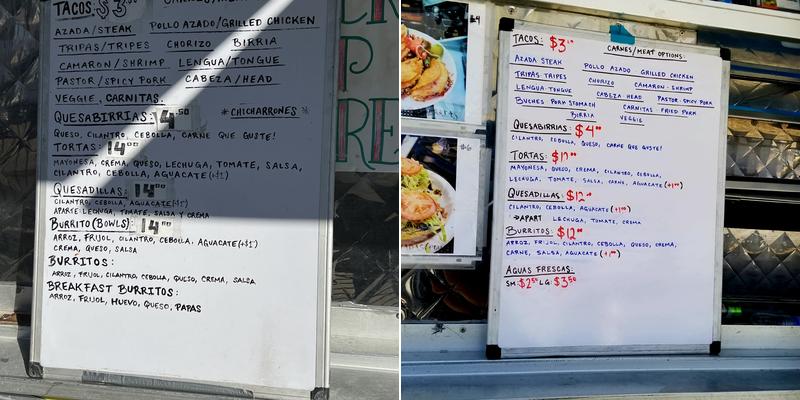 TACOS: $3
AZADA/STEAK POLLO AZADO/GRILLED CHICKEN
TRIPAS/TRIPES CHORIZO BIRRIA
CAMARON/SHRIMP LENGUA/TONGUE
PASTOR/SPICY PORK CABEZA/HEAD
VEGGIE, CARNITAS.
QUESABIRRIAS: $4.50 *CHICHARRONES*
QUESO, CILANTRO, CEBOLLA, CARNE QUE GUSTE!
TORTAS: 14.00
MAYONESA, CREMA, QUESO, LECHUGA, TOMATE, SALSA,
CILANTRO, CEBOLLA, AGUACATE (+$1)
QUESADILLAS: 14.00
CILANTRO, CEBOLLA, AGUACATE (+$1)
APARTE: LECHUGA, TOMATE, SALSA Y CREMA
BURRITO (BOWLS): 14.00
ARROZ, FRIJOL, CILANTRO, CEBOLLA, AGUACATE (+$1)
CREMA, QUESO, SALSA
BURRITOS:
ARROZ, FRIJOL, CILANTRO, CEBOLLA, QUESO, CREMA, SALSA
BREAKFAST BURRITOS:
ARROZ, FRIJOL, HUEVO, QUESO, PAPAS
TACOS: $3
CARNES/MEAT OPTIONS:
AZADA STEAK POLLO AZADO GRILLED CHICKEN
TRIPAS TRIPES CHORIZO CAMARON - SHRIMP
LENGUA TONGUE CABEZA HEAD PASTOR - SPICY PORK
BUCHES PORK STOMACH CARNITAS FRIED PORK
BIRRIA VEGGIE
QUESABIRRIAS: $4.00
CILANTRO, CEBOLLA, QUESO, CARNE QUE GUSTE!
TORTAS: $12.00
MAYONESA, QUESO, CREMA, CILANTRO, CEBOLLA,
LECHUGA, TOMATE, SALSA, CARNE, AGUACATE (+1.00)
QUESADILLAS: $12.00
CILANTRO, CEBOLLA, AGUACATE (+1.00)
→APART LECHUGA, TOMATE, CREMA
BURRITOS: $12.00
ARROZ, FRIJOL, CILANTRO, CEBOLLA, QUESO, CREMA,
CARNE, SALSA, AGUACATE (+1.00)
AGUAS FRESCAS:
SM: $2.50 LG: $3.50